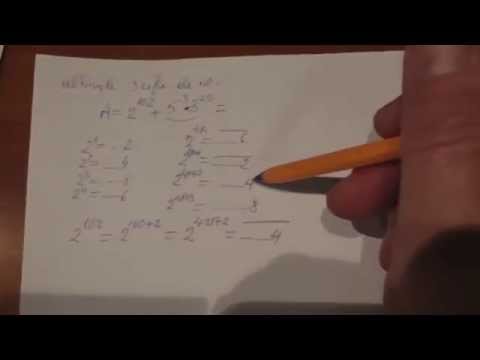 ultimele 3 cifre ale nr.
A = 2^102 + 5^3 · 5^20 =
2^1 = __2 2^4k = __6
2^2 = __4 2^4k+1 = __2
2^3 = __8 2^4k+2 = __4
2^4 = __6 2^4k+3 = __8
2^102 = 2^100+2 = 2^4·25+2 = __4